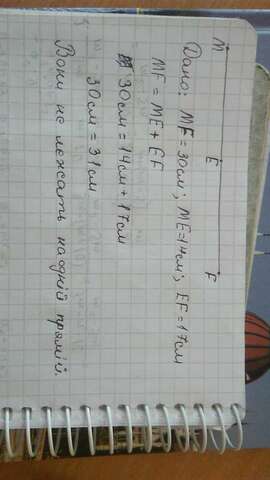 M E F
Дано: MF = 30см; ME=14см; EF = 17см
MF = ME + EF
30см = 14см + 17см
30см = 31см
Вони не лежать на одній прямій.